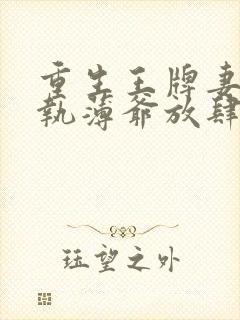 重生王牌妻
執薄爺放肆
珏望之外